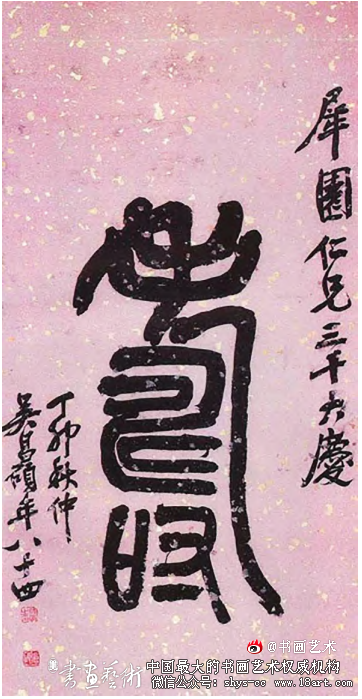 犀園仁兄三十大慶
壽
丁卯秋仲
吳昌碩年八十四
@书画艺术
書畫藝術
中国最大的书画艺术权威机构
微信公众号: shys-cc www.18art.com